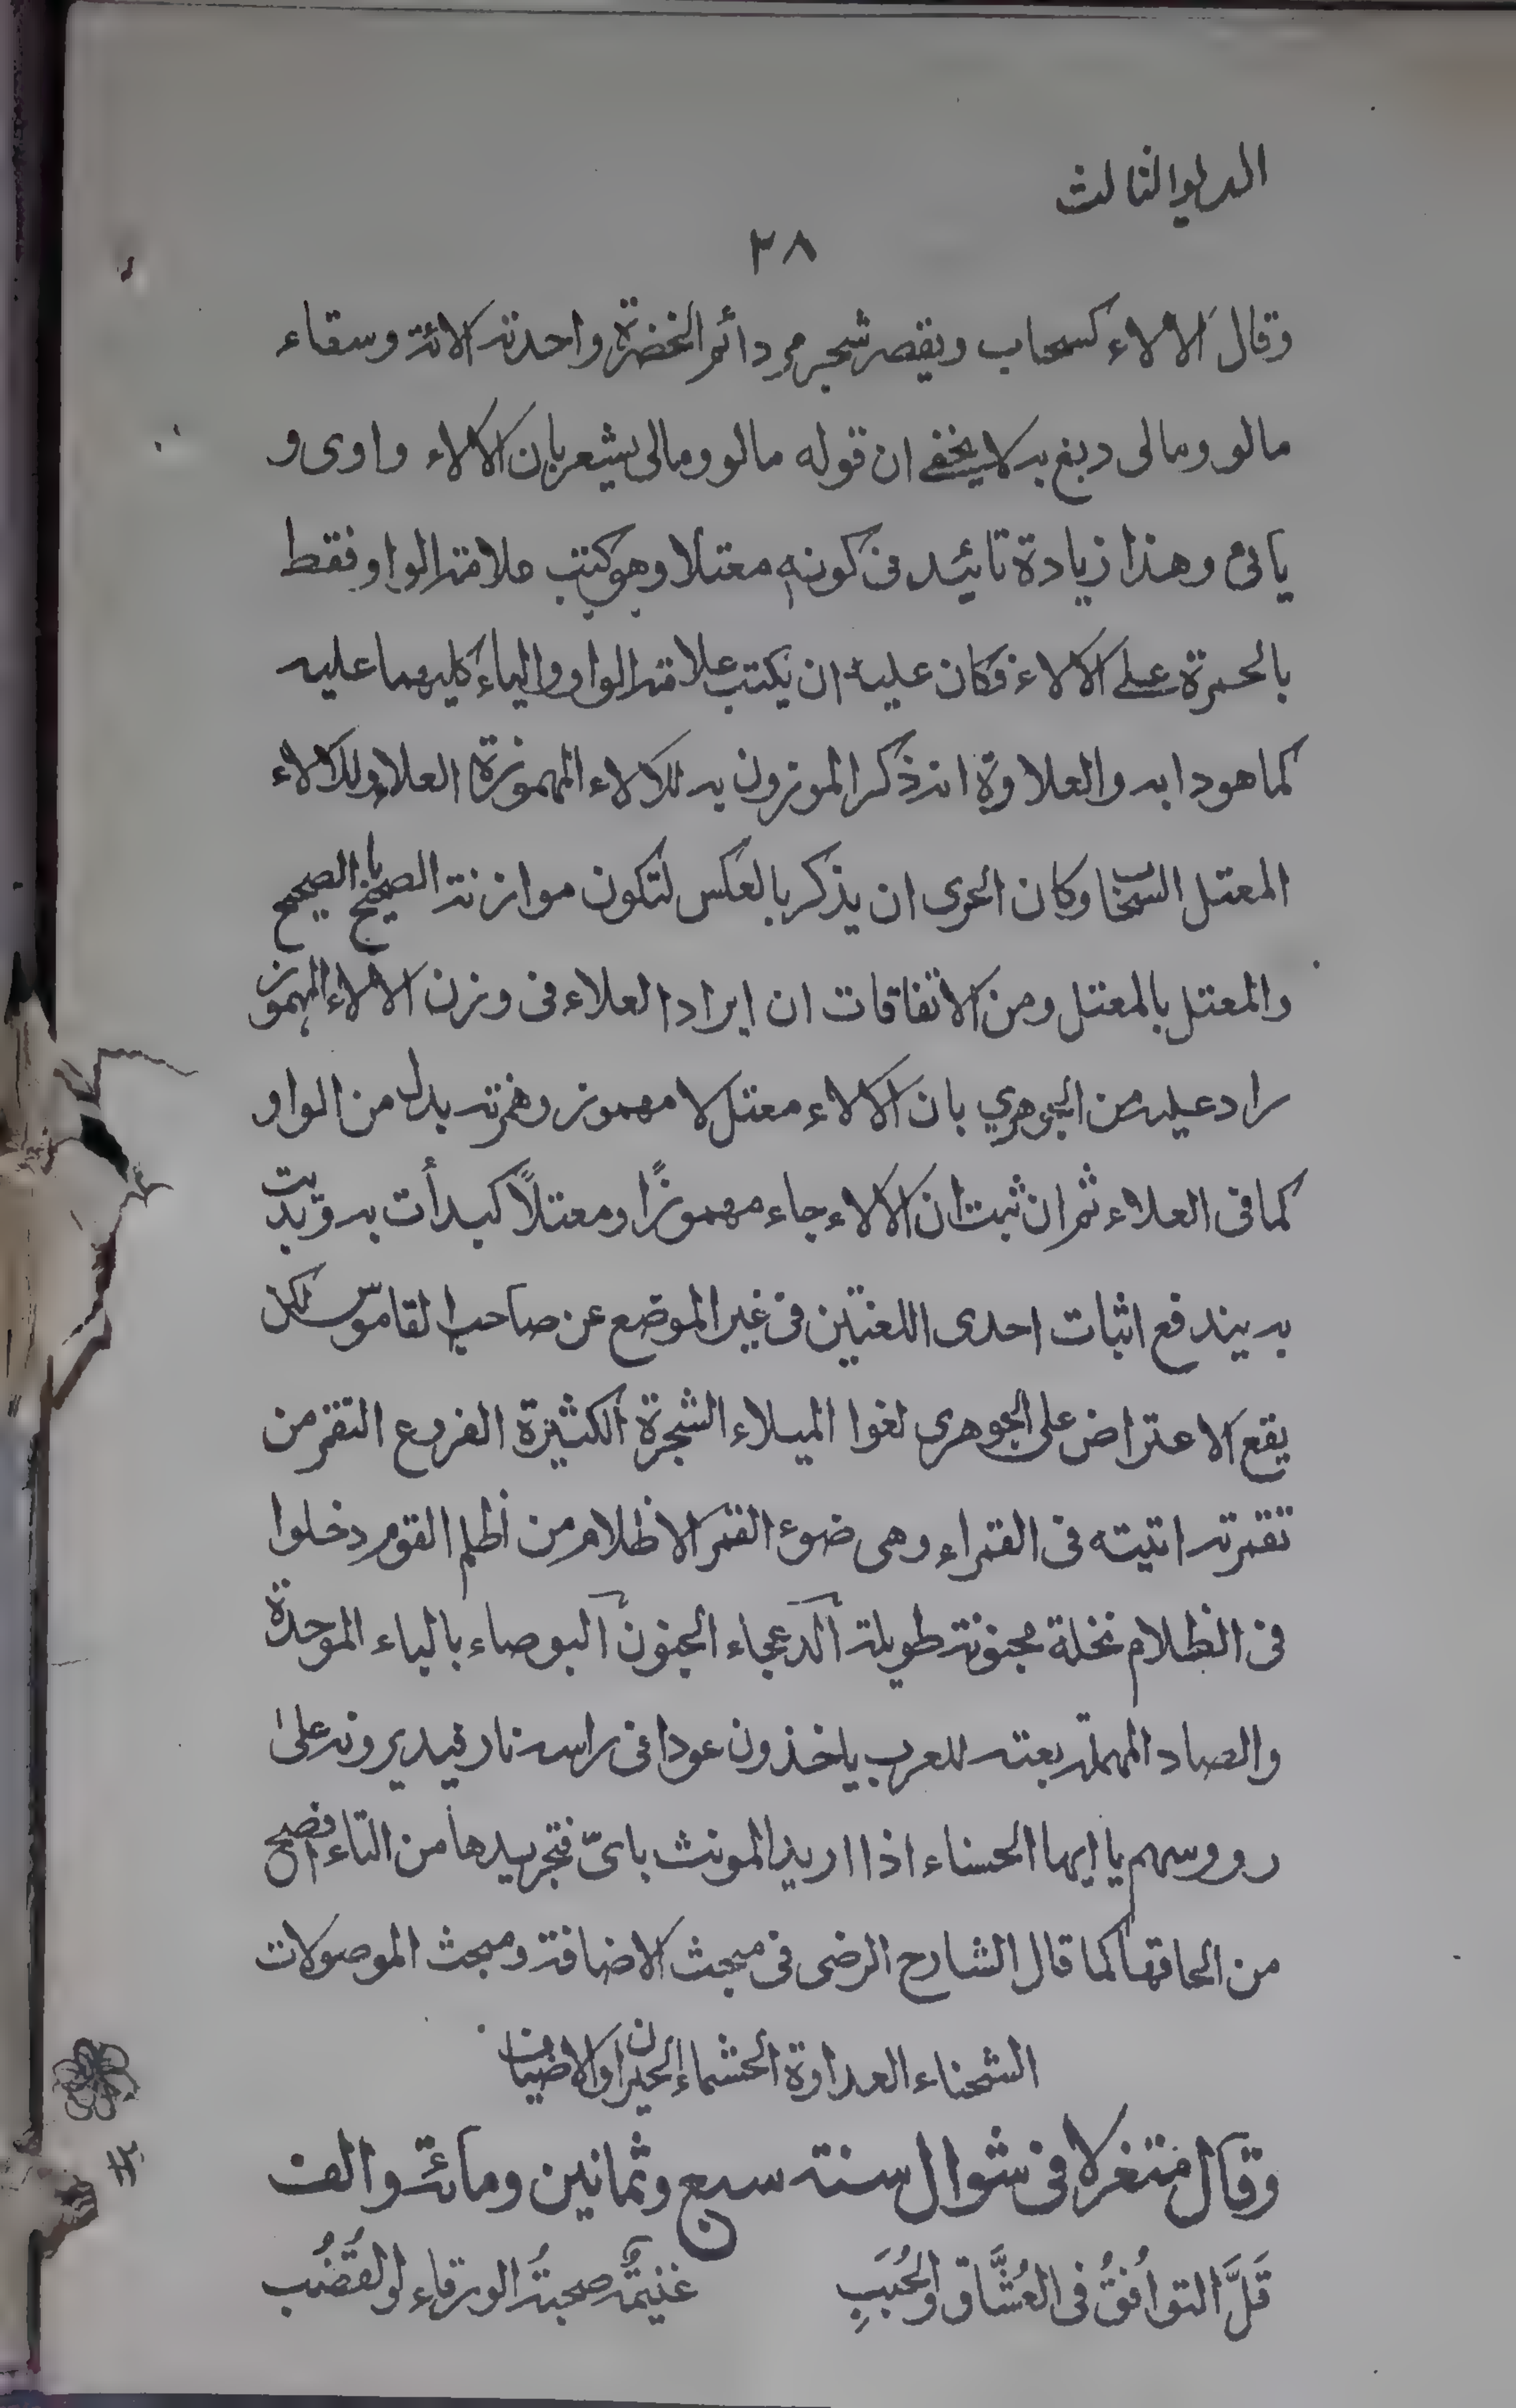 الديوالثالث
٢٨
وقال الالاء كسحاب ويقصر شجر مر دائم الخضرة واحدته الائة وسقاء
مالو ومالى دبغ به لا يخفى ان قوله مالو ومالى يشعر بان الالاء واوى و
يائ وهذا زيادة تائيد فى كونه معتلا وهو كتب علامة الواو فقط
بالحمرة على الالاء فكان عليه ان يكتب علامة الواو والياء كليهما عليه
كما هو دابه والعلاوة انه ذكر الموزون به للالاء المهموزة العلاء وللالاء
المعتل السحاب وكان الحرى ان يذكر بالعكس لتكون موازنة الصحيح بالصحيح
والمعتل بالمعتل ومن الاتفاقات ان ايراد العلاء فى وزن الالاء المهموز
راد عليه من الجوهري بان الالاء معتل لا مهموز وهمزته بدل من الواو
كما فى العلاء ثم ان ثبت ان الالاء جاء مهموزًا ومعتلاً كبدأت به وبديت
به يندفع اثبات احدى اللغتين فى غير الموضع عن صاحب القاموس لكن
يقع الاعتراض على الجوهرى لغوا الميلاء الشجرة الكثيرة الفروع التقمر من
تقمرته اتيته فى القمراء وهى ضوء القمر الاظلام من أظلم القوم دخلوا
فى الظلام نخلة مجنونة طويلة الدعجاء الجنون البوصاء بالباء الموحدة
والصاد المهملة لعبة للعرب ياخذون عودا فى راسه نار فيديرونه على
رووسهم يا ايها الحسناء اذا اريد المونث باىّ فتجريدها من التاء افصح
من الحاقها كما قال الشارح الرضى فى مبحث الاضافة ومبحث الموصولات
الشحناء العداوة الحشماء الجيران والاضياف
وقال متغزلا فى شوال سنة سبع وثمانين ومائة والف
قَلَّ التوافُقُ فى العُشَّاقِ والحُبَبِ غنيمةٌ صحبةُ الورقاءِ والقُضُب